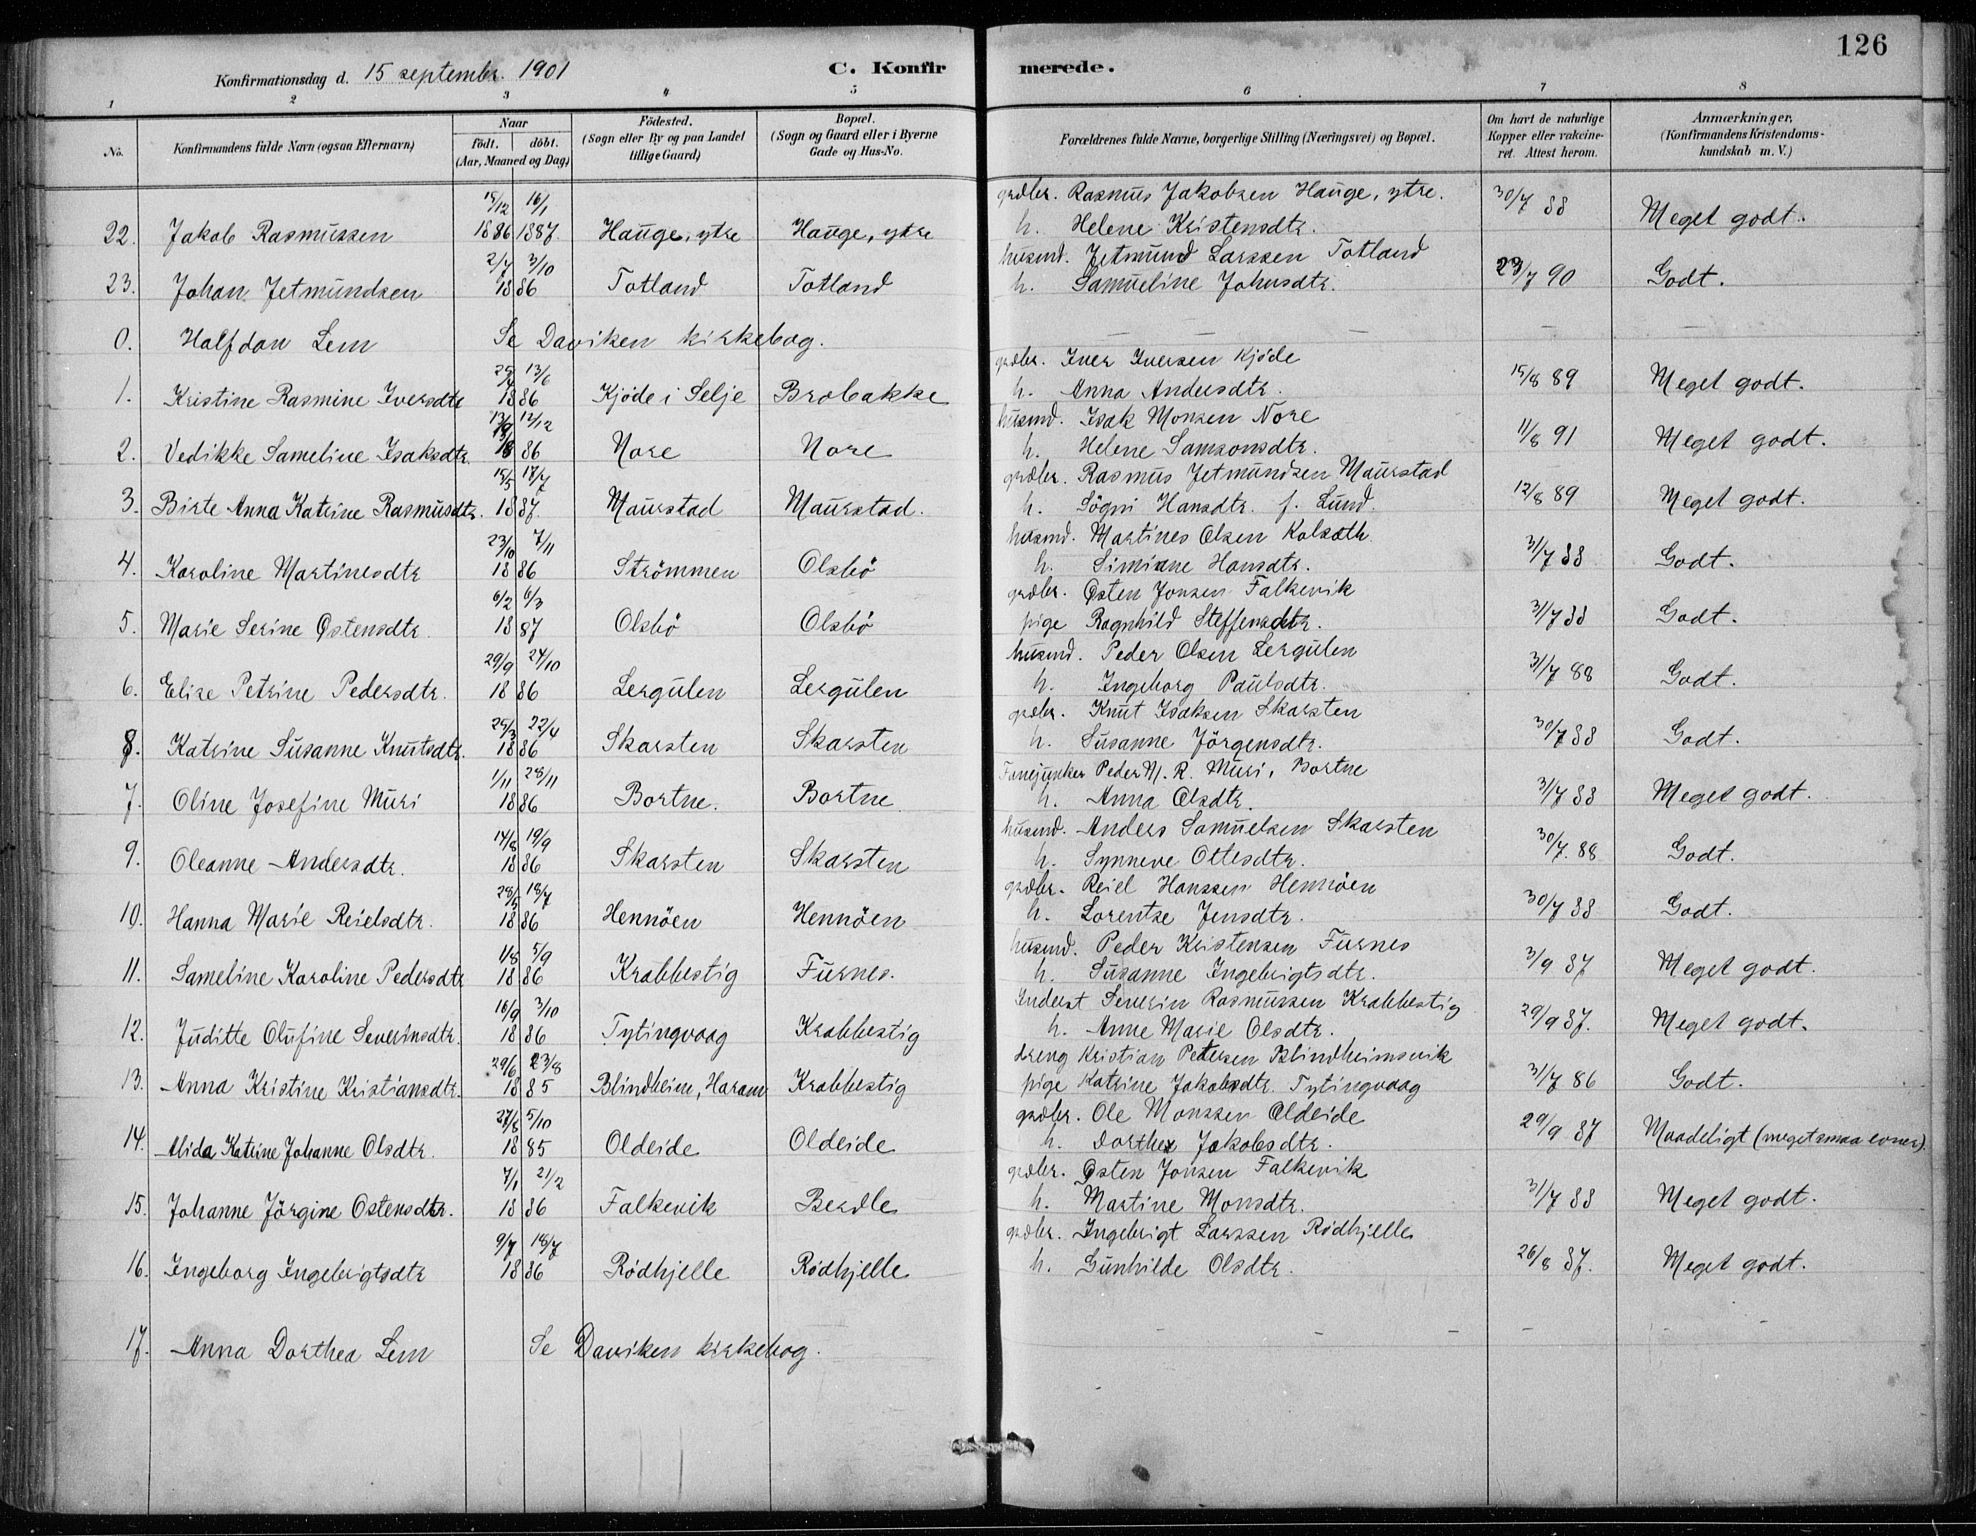 126
Konfirmationsdag d. 15 septembr. 1901 C. Konfir merede.
1 2 3 4 5 6 7 8
No. Konfirmandens fulde Navn (ogsaa Efternavn) Naar födt. döbt. (Aar, Maaned og Dag) Födested. (Sogn eller By og paa Landet tillige Gaard) Bopæl. (Sogn og Gaard eller i Byerne Gade og Hus-No. Forældrenes fulde Navne, borgerlige Stilling (Næringsvei) og Bopæl. Om havt de naturlige Kopper eller vakcineret. Attest herom. Anmærkninger, (Konfirmandens Kristendomskundskab m. V.)
15/12 16/1 grdbr. Rasmus Jakobsen Hauge, ytre. 30/7 88
22. Jakob Rasmussen 1886 1887 Hauge, ytre Hauge, ytre h. Helene Kristensdtr. Meget godt.
2/7 3/10 husmd. Jetmund Larssen Totland
23. Johan Jetmundsen 1886 Totland Totland h. Samueline Johnsdtr. 23/7 90 Godt.
0. Halfdan Lem Se Daviken kirkebog. — — — — —
29/4 13/6 grdbr. Iver Iversen Kjöde
1. Kristine Rasmine Iversdtr 1886 Kjöde i Selje Brobakke h. Anna Andersdtr. 15/8 89 Meget godt.
12/12 husmd. Isak Monsen Nore
2. Vedikke Sameline Isaksdtr. 1886 Nore Nore h. Helene Samsonsdtr. 11/8 91 Meget godt.
15/5 17/7 grdbr. Rasmus Jetmundsen Maurstad
3. Birte Anna Katrine Rasmusdtr. 1887 Maurstad Maurstad. h. Sögni Hansdtr. f. Lund. 12/8 89 Meget godt.
23/10 7/11 husmd. Martines Olsen Kolsæth
4. Karoline Martinesdtr 1886 Strömmen Olsbö h. Simiane Hansdtr. 31/7 88 Godt.
6/2 6/3 grdbr. Østen Jonsen Falkevik
5. Marie Serine Østensdtr. 1887 Olsbö Olsbö pige Ragnhild Steffensdtr. 31/7 88 Godt.
29/9 24/10 husmd. Peder Olsen Lergulen
6. Elise Petrine Pedersdtr. 1886 Lergulen Lergulen h. Ingeborg Paulsdtr. 31/7 88 Godt.
25/3 22/4 grdbr. Knut Isaksen Skarsten
8. Katrine Susanne Knutsdtr. 1886 Skarsten Skarsten h. Susanne Jörgensdtr. 30/7 88 Godt.
1/11 28/11 Fanejunker Peder M. R. Muri, Bortne
7. Oline Josefine Muri 1886 Bortne. Bortne h. Anna Olsdtr. 31/7 88 Meget godt.
14/8 19/9 husmd. Anders Samuelsen Skarsten
9. Oleanne Andersdtr. 1886 Skarsten Skarsten h. Synneve Ottesdtr. 30/7. 88 Godt.
28/5 18/7 grdbr. Reiel Hanssen Hennöen
10. Hanna Marie Reielsdtr. 1886 Hennöen Hennöen h. Lorentse Jensdtr. 30/7 88 Godt.
1/8 5/9 husmd. Peder Kristensen Furnes
11. Sameline Karoline Pedersdtr 1886 Krabbestig Furnes. h. Susanne Ingebrigtsdtr. 3/9 87 Meget godt.
16/9 3/10 Inderst Severin Rasmussen Krabbestig
12. Juditte Olufine Severinsdtr. 1886 Tytingvaag Krabbestig h. Anne Marie Olsdtr. 29/9 87. Meget godt.
29/6 23/8 dreng Kristian Petersen Blindheimsvik
13. Anna Kristine Kristiansdtr. 1885 Blindheim, Haram Krabbestig pige Katrine Jakobsdtr. Tytingvaag 31/7 86 Godt.
27/8 5/10 grdbr. Ole Monssen Oldeide
14. Alida Katrine Johanne Olsdtr. 1885 Oldeide Oldeide h. Dorthea Jakobsdtr. 29/9 87 Maadeligt (meget smaa evner).
7/1 21/2 grdbr. Østen Jonsen Falkevik
15. Johanne Jörgine Ostensdtr. 1886 Falkevik Berdle h. Martine Monsdtr. 31/7 88 Meget godt.
9/7 18/7 grdbr. Ingebrigt Larssen Rødhjelle
16. Ingeborg Ingebrigtsdtr 1886 Rødhjelle Rødhjelle h. Gunhilde Olsdtr. 26/8 87. Meget godt.
17. Anna Dorthea Lem Se Daviken kirkebog. — — — — —